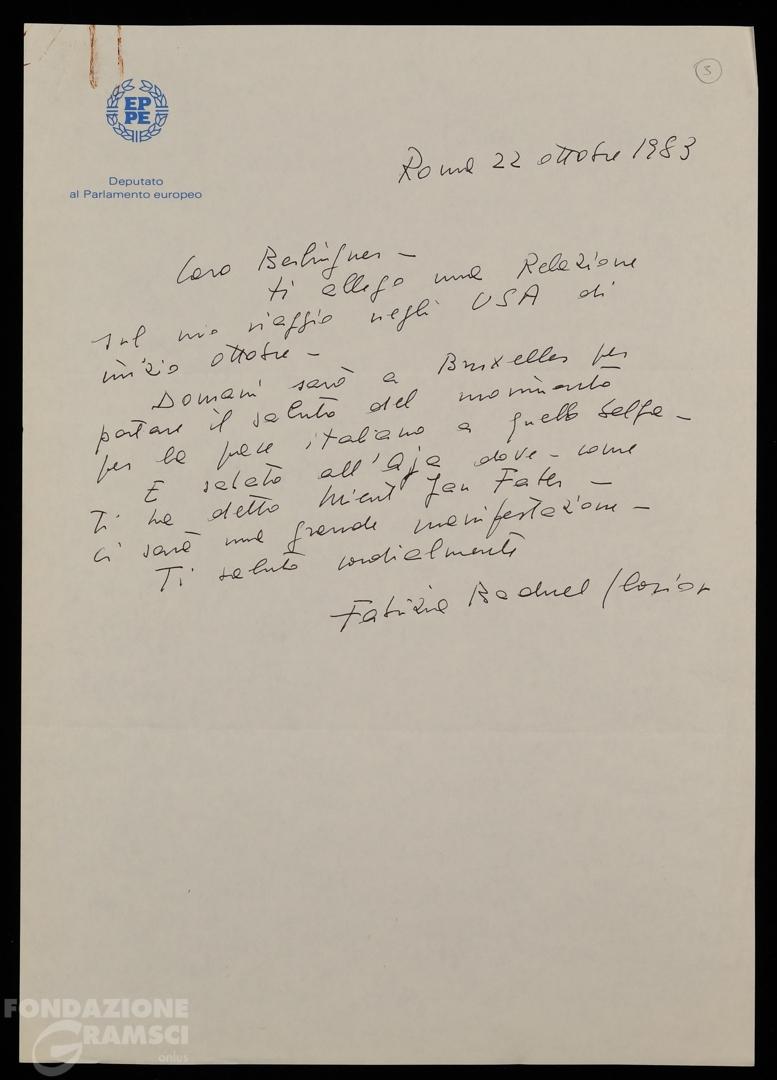 3
EP
PE
Deputato
al Parlamento europeo
Roma 22 ottobre 1983
Caro Berlinguer -
ti allego una Relazione
sul mio viaggio negli USA di
inizio ottobre -
Domani sarò a Bruxelles per
portare il saluto del movimento
per la pace italiano a quello belga -
E sabato all'Aja dove - come
ti ha detto Mient Jan Faber -
ci sarà una grande manifestazione -
Ti saluto cordialmente
Fabrizia Baduel Glorioso
FONDAZIONE
GRAMSCI
onlus